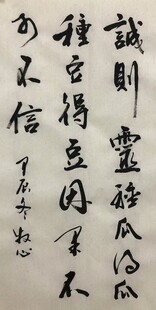 誠則靈種瓜得瓜
種豆得豆因果不
可不信
甲辰冬牧心